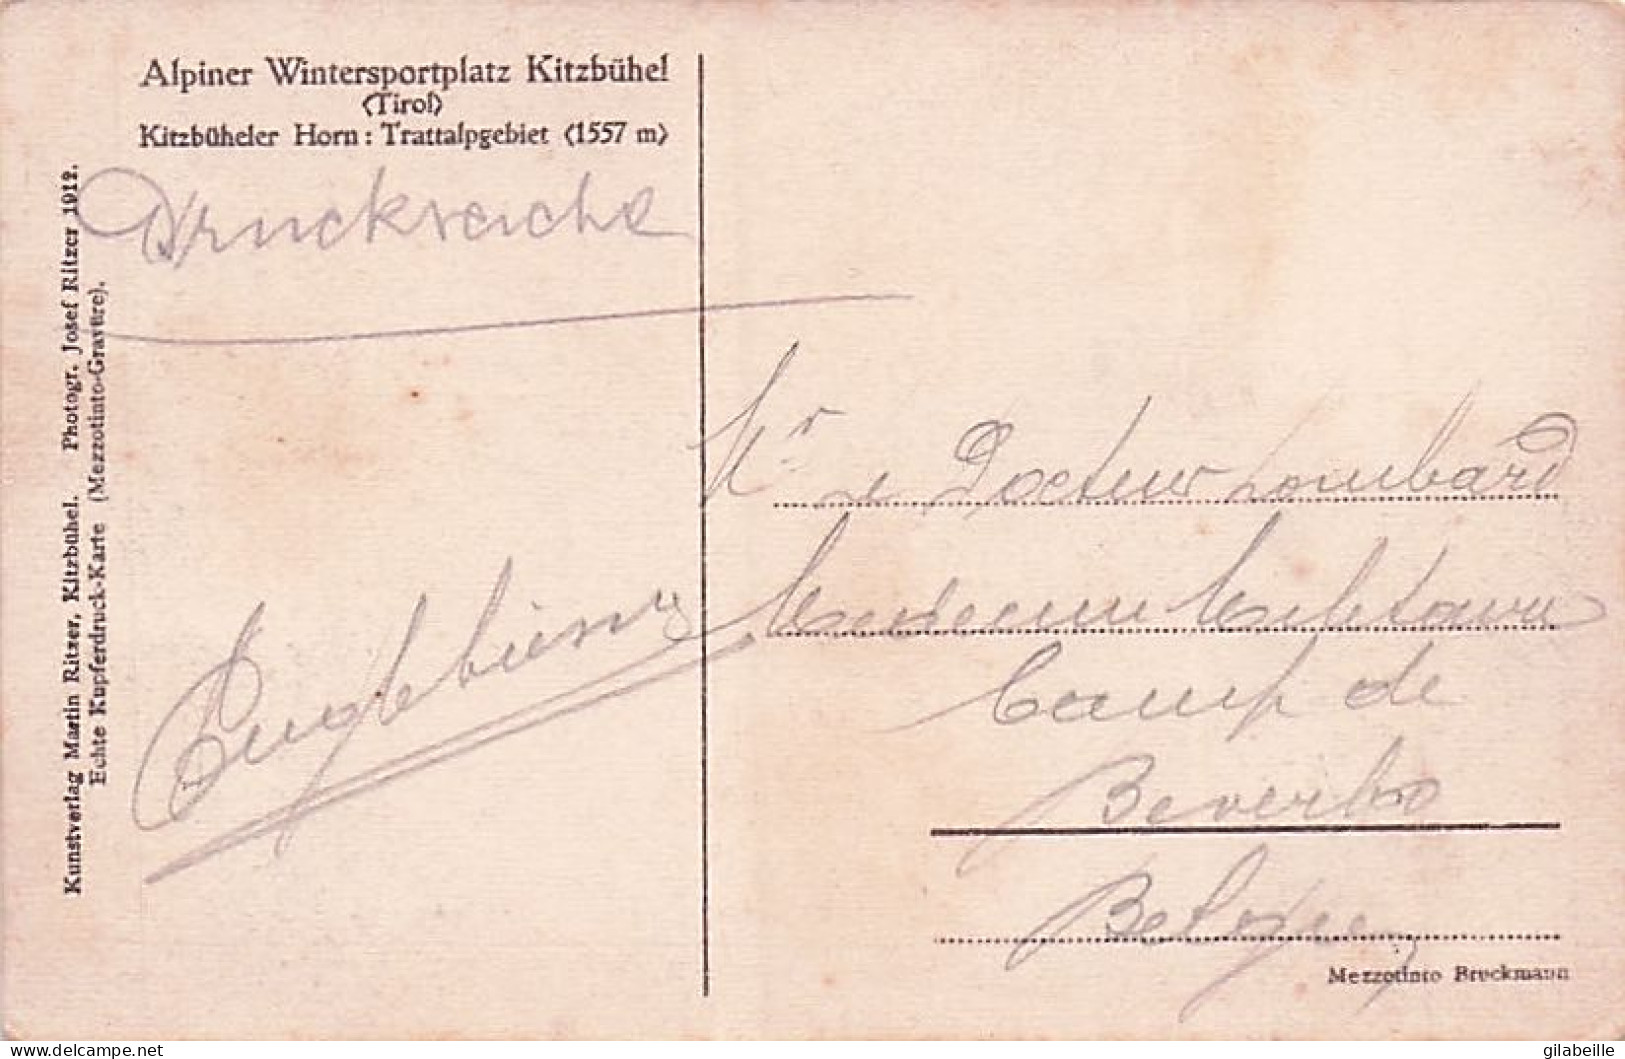 Alpiner Wintersportplatz Kitzbühel
(Tirol)
Kitzbüheler Horn: Trattalpgebiet (1557 m)
Drucksache
Kunstverlag Martin Ritzer, Kitzbühel. Photogr. Josef Ritzer 1912.
Echte Kupferdruck-Karte (Mezzotinto-Gravüre).
Mr le Docteur Lombard
Médecin Militaire
Camp de
Beverloo
Belgien
Mezzotinto Bruckmann
www.delcampe.net
gilabeille